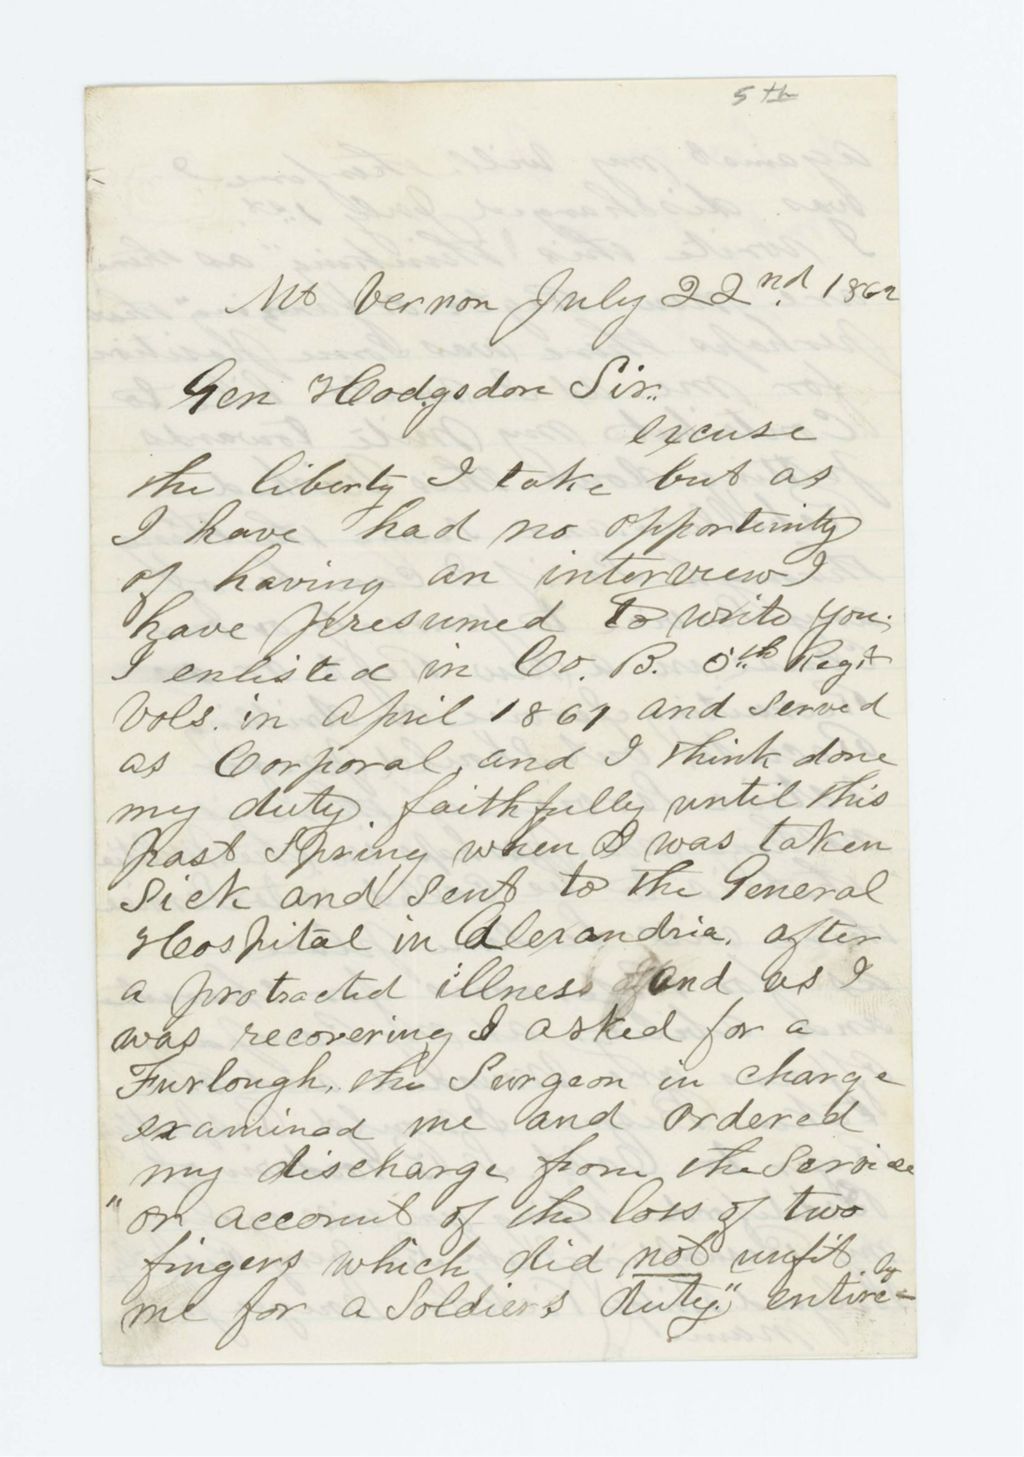 5th
Mt Vernon July 22nd. 1862
Gen Hodgsdon Sir..
excuse
the liberty I take but as
I have had no opportunity
of having an interview I
have presumed to write you.
I enlisted in Co. B. 5th Regt
Vols. in April 1861 and served
as Corporal, and I think done
my duty faithfully until this
past Spring when I was taken
Sick and sent to the General
Hospital in Alexandria. after
a protracted illness and as I
was recovering I asked for a
Furlough, the Surgeon in charge
examined me and ordered
my discharge from the Service
"on account of the loss of two
fingers which did not unfit
me for a Soldiers duty." entirely